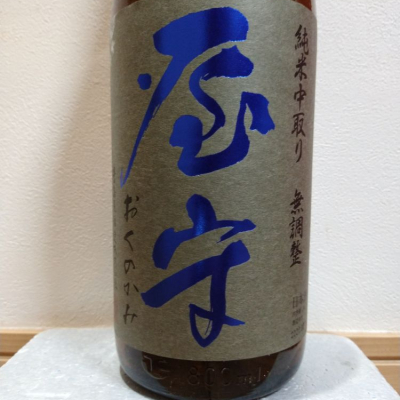 純米中取り 無調整
屋守
おくのかみ